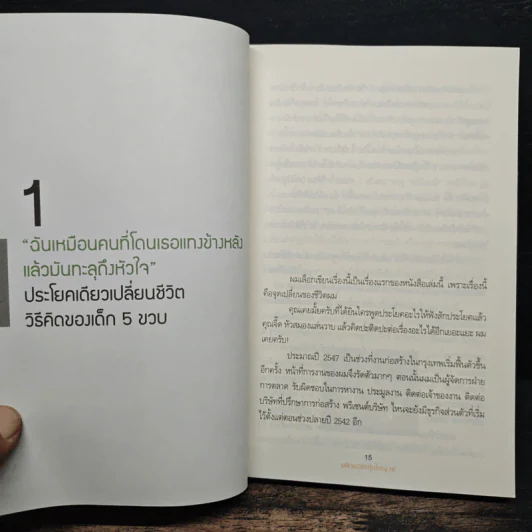 1
“ฉันเหมือนคนที่โดนเธอแทงข้างหลัง
แล้วมันทะลุถึงหัวใจ”
ประโยคเดียวเปลี่ยนชีวิต
วิธีคิดของเด็ก 5 ขวบ
ผมเลือกเขียนเรื่องนี้เป็นเรื่องแรกของหนังสือเล่มนี้ เพราะเรื่องนี้
คือจุดเปลี่ยนของชีวิตผม
คุณเคยมั้ยครับที่ได้ยินใครพูดประโยคอะไรให้ฟังสักประโยคแล้ว
คุณจี๊ด หัวสมองแล่นวาบ แล้วคิดปะติดปะต่อเรื่องอะไรได้อีกเยอะแยะ ผม
เคยครับ!
ประมาณปี 2547 เป็นช่วงที่งานก่อสร้างในกรุงเทพเริ่มฟื้นตัวขึ้น
อีกครั้ง หน้าที่การงานของผมจึงรัดตัวมากๆ ตอนนั้นผมเป็นผู้จัดการฝ่าย
การตลาด รับผิดชอบในการหางาน ประมูลงาน ติดต่อเจ้าของงาน ติดต่อ
บริษัทที่ปรึกษาการก่อสร้าง พรีเซนต์บริษัท ไหนจะยังมีธุรกิจส่วนตัวที่เริ่ม
ไว้ตั้งแต่ตอนช่วงปลายปี 2542 อีก
15